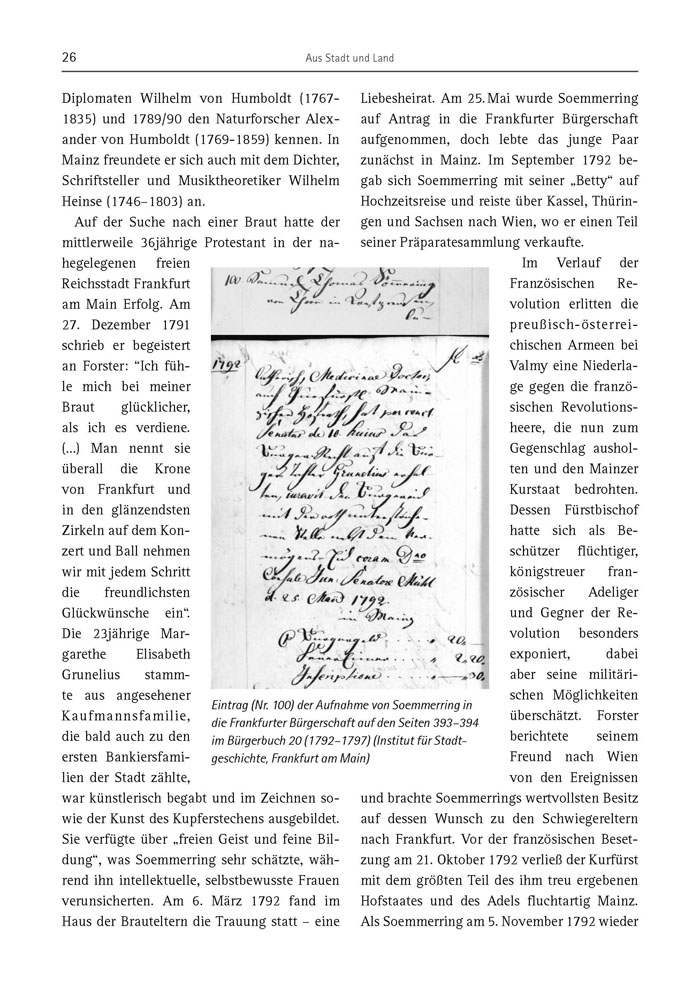 26
Aus Stadt und Land
Diplomaten Wilhelm von Humboldt (1767-
1835) und 1789/90 den Naturforscher Alex-
ander von Humboldt (1769-1859) kennen. In
Mainz freundete er sich auch mit dem Dichter,
Schriftsteller und Musiktheoretiker Wilhelm
Heinse (1746–1803) an.
Auf der Suche nach einer Braut hatte der
mittlerweile 36jährige Protestant in der na-
hegelegenen freien
Reichsstadt Frankfurt
am Main Erfolg. Am
27. Dezember 1791
schrieb er begeistert
an Forster: "Ich füh-
le mich bei meiner
Braut glücklicher,
als ich es verdiene.
(...) Man nennt sie
überall die Krone
von Frankfurt und
in den glänzendsten
Zirkeln auf dem Kon-
zert und Ball nehmen
wir mit jedem Schritt
die freundlichsten
Glückwünsche ein“.
Die 23jährige Mar-
garethe Elisabeth
Grunelius stamm-
te aus angesehener
Kaufmannsfamilie,
die bald auch zu den
ersten Bankiersfami-
lien der Stadt zählte,
war künstlerisch begabt und im Zeichnen so-
wie der Kunst des Kupferstechens ausgebildet.
Sie verfügte über „freien Geist und feine Bil-
dung“, was Soemmerring sehr schätzte, wäh-
rend ihn intellektuelle, selbstbewusste Frauen
verunsicherten. Am 6. März 1792 fand im
Haus der Brauteltern die Trauung statt – eine
100 Samuel Thomas Sömmering
1792
Medicinae Doctor,
Senatus de 10. huius
Grunelius
iuravit
coram Dno
Consule Jun. Senatore Mühl
d. 25. 1792.
in Mainz
20.
Inscriptione
Eintrag (Nr. 100) der Aufnahme von Soemmerring in
die Frankfurter Bürgerschaft auf den Seiten 393–394
im Bürgerbuch 20 (1792–1797) (Institut für Stadt-
geschichte, Frankfurt am Main)
Liebesheirat. Am 25. Mai wurde Soemmerring
auf Antrag in die Frankfurter Bürgerschaft
aufgenommen, doch lebte das junge Paar
zunächst in Mainz. Im September 1792 be-
gab sich Soemmerring mit seiner „Betty“ auf
Hochzeitsreise und reiste über Kassel, Thürin-
gen und Sachsen nach Wien, wo er einen Teil
seiner Präparatesammlung verkaufte.
Im Verlauf der
Französischen Re-
volution erlitten die
preußisch-österrei-
chischen Armeen bei
Valmy eine Niederla-
ge gegen die franzö-
sischen Revolutions-
heere, die nun zum
Gegenschlag aushol-
ten und den Mainzer
Kurstaat bedrohten.
Dessen Fürstbischof
hatte sich als Be-
schützer flüchtiger,
königstreuer fran-
zösischer Adeliger
und Gegner der Re-
volution besonders
exponiert, dabei
aber seine militäri-
schen Möglichkeiten
überschätzt. Forster
berichtete seinem
Freund nach Wien
von den Ereignissen
und brachte Soemmerrings wertvollsten Besitz
auf dessen Wunsch zu den Schwiegereltern
nach Frankfurt. Vor der französischen Beset-
zung am 21. Oktober 1792 verließ der Kurfürst
mit dem größten Teil des ihm treu ergebenen
Hofstaates und des Adels fluchtartig Mainz.
Als Soemmerring am 5. November 1792 wieder